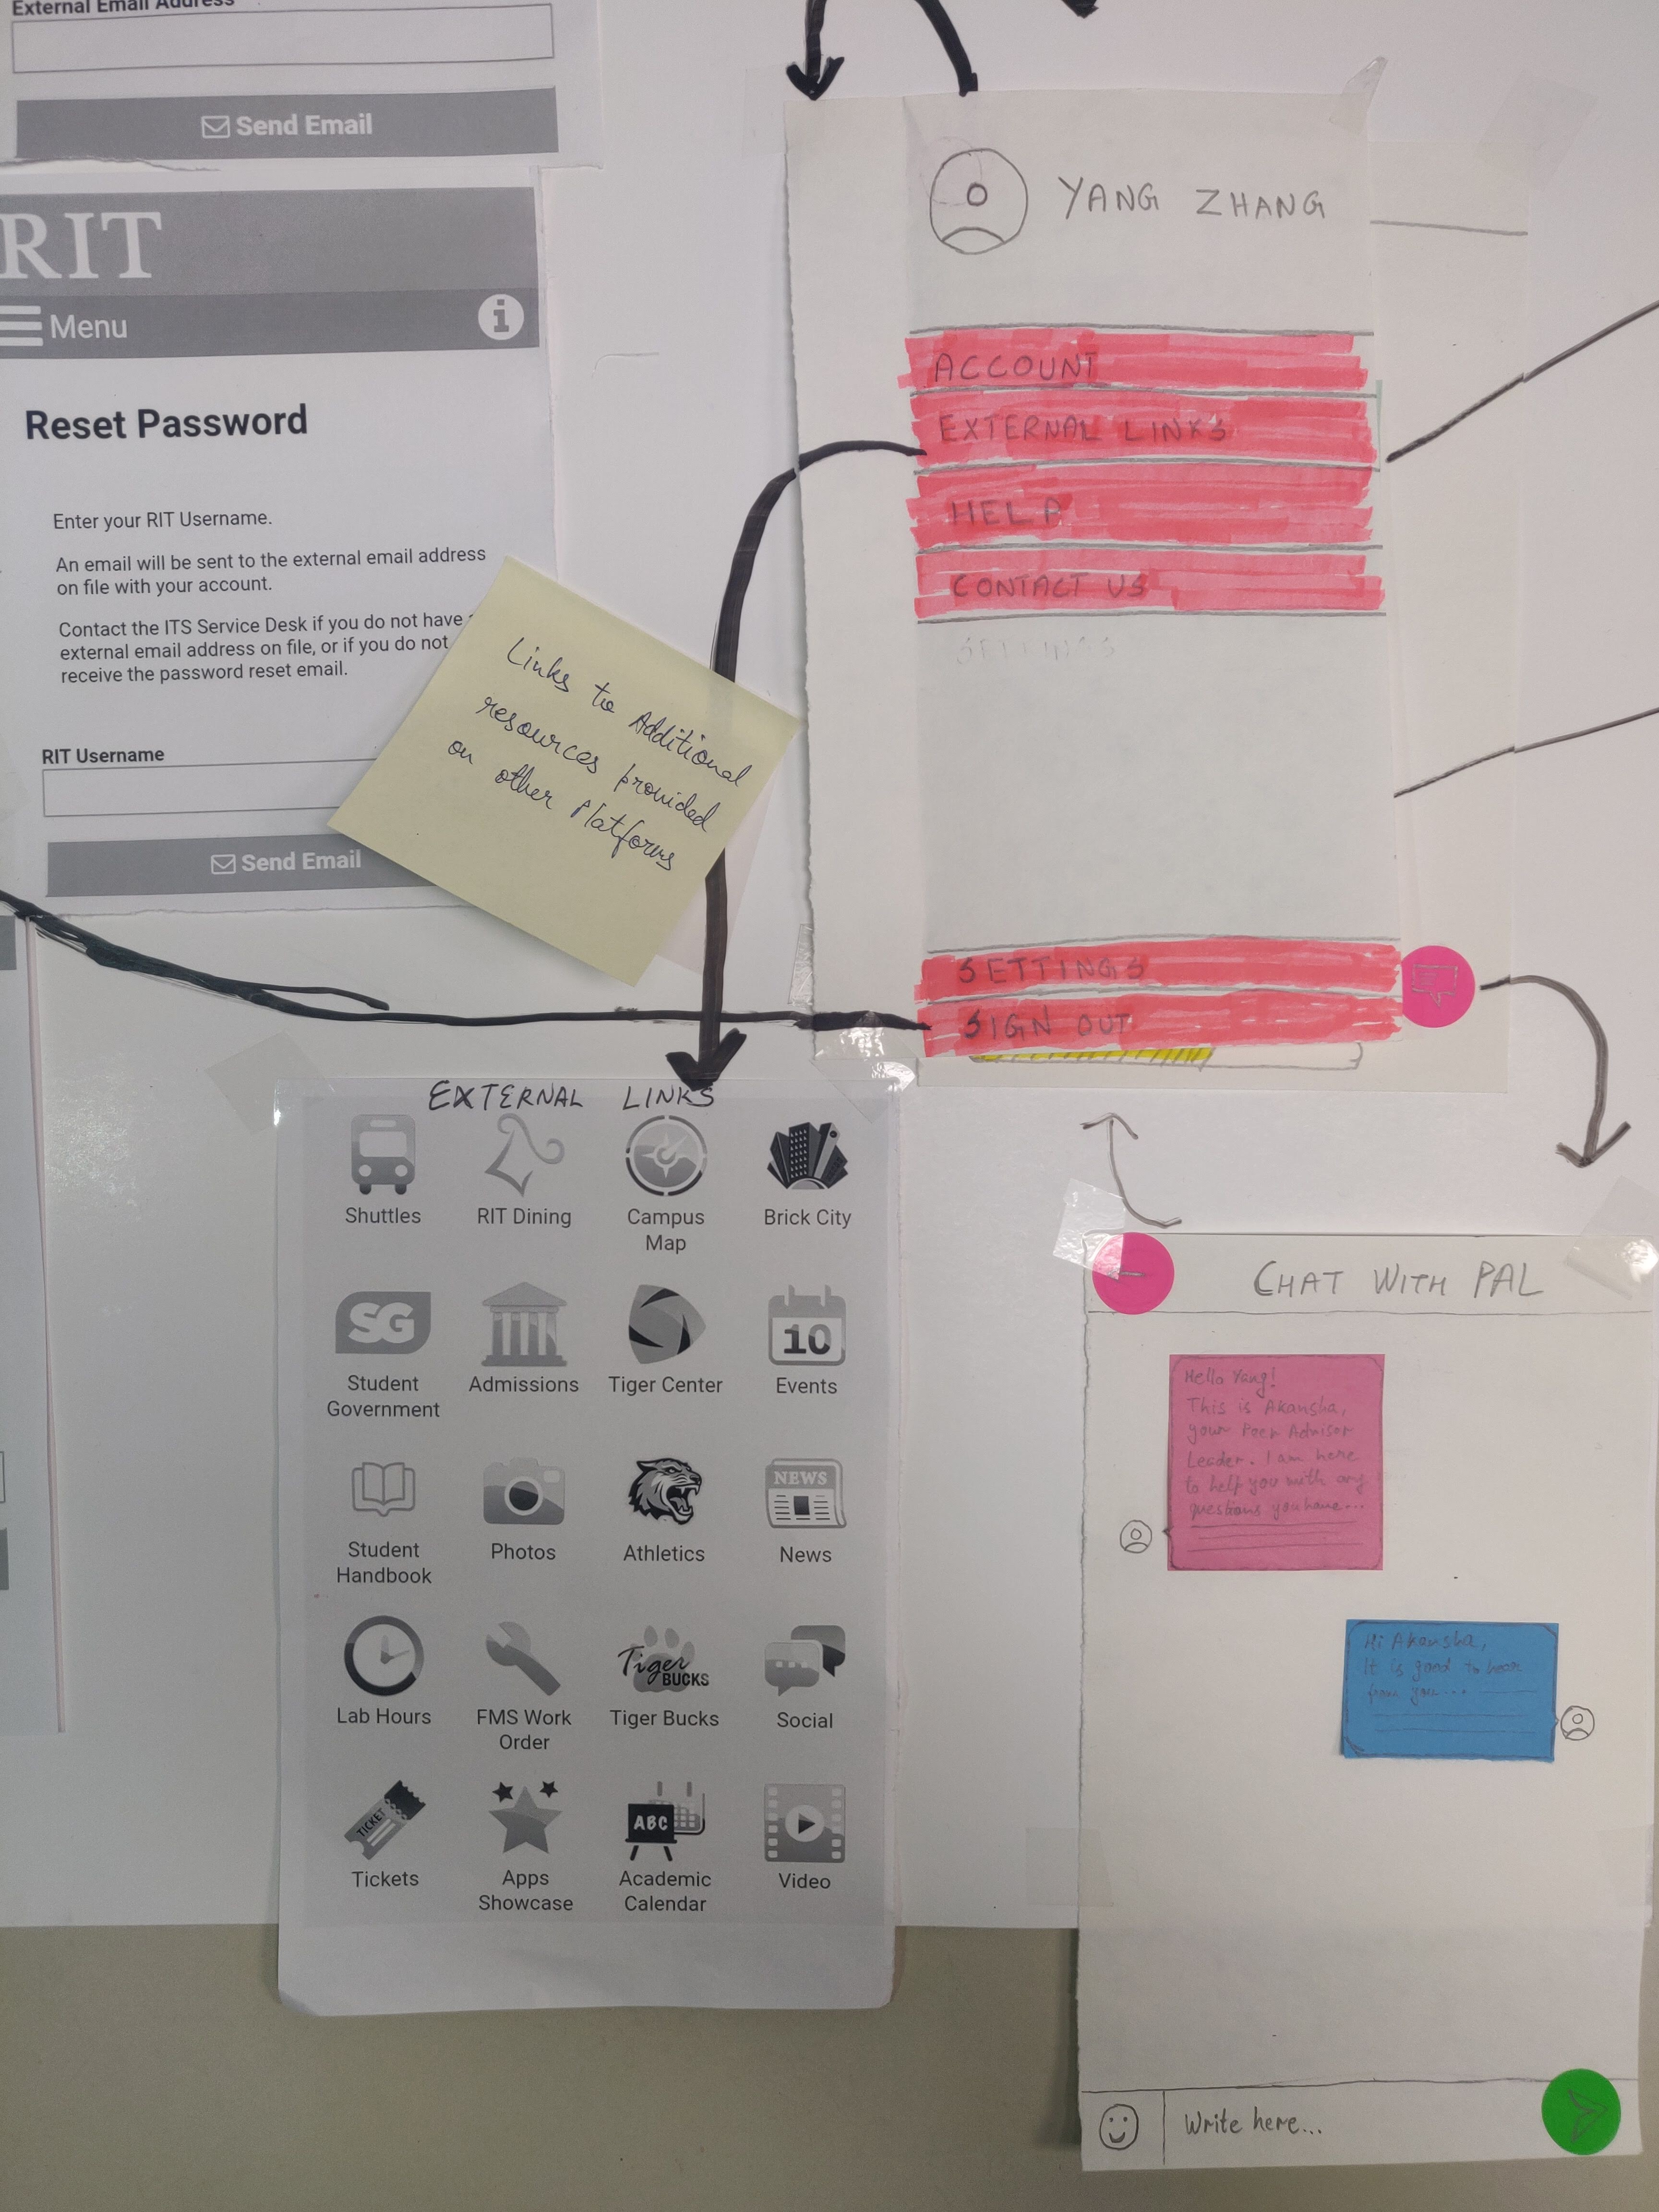 External Email Address
Send Email
RIT
Menu
Reset Password
Enter your RIT Username.
An email will be sent to the external email address
on file with your account.
Contact the ITS Service Desk if you do not have
external email address on file, or if you do not
receive the password reset email.
RIT Username
Send Email
Links to Additional
resources provided
on other Platforms
YANG ZHANG
ACCOUNT
EXTERNAL LINKS
HELP
CONTACT US
SETTINGS
SETTINGS
SIGN OUT
EXTERNAL LINKS
Shuttles
RIT Dining
Campus
Map
Brick City
SG
Student
Government
Admissions
Tiger Center
10
Events
Student
Handbook
Photos
Athletics
NEWS
News
Lab Hours
FMS Work
Order
Tiger
BUCKS
Tiger Bucks
Social
TICKET
Tickets
Apps
Showcase
ABC
Academic
Calendar
Video
CHAT WITH PAL
Hello Yang!
This is Akansha,
your Peer Advisor
Leader. I am here
to help you with any
questions you have...
Hi Akansha,
It is good to hear
from you...
Write here...